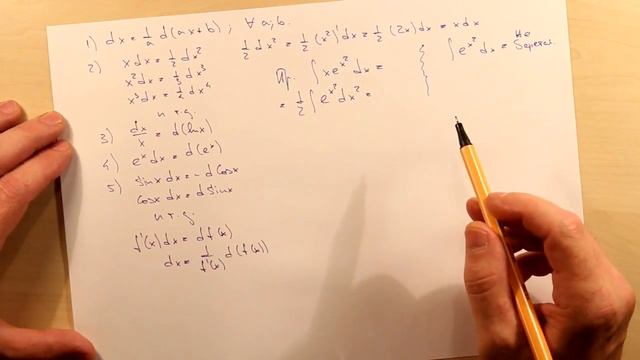 1) dx = 1/a d(ax+b) ; ∀ a, b.
2) x dx = 1/2 dx²
x² dx = 1/3 dx³
x³ dx = 1/4 dx⁴
и т.д.
3) dx/x = d(ln x)
4) eˣ dx = d(eˣ)
5) sin x dx = - d cos x
cos x dx = d sin x
и т.д.
f'(x) dx = d f(x)
dx = 1/f'(x) d(f(x))
1/2 dx² = 1/2 (x²)' dx = 1/2 (2x) dx = x dx
Пр. ∫ x e^x² dx =
= 1/2 ∫ e^x² dx² =
∫ e^x² dx = Не берется.